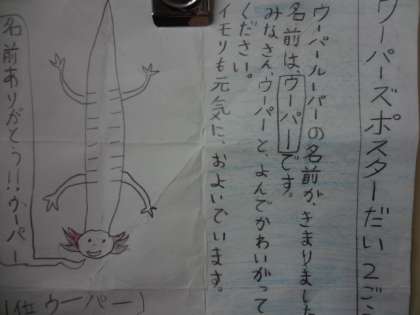 ウーパーズポスターだい2ごう
ウーパールーパーの名前が、きまりました
名前は、ウーパーです。
みなさん、ウーパーと、よんでかわいがって
ください。
イモリも元気に、およいでいます。
名前ありがとう!!ウーパー
ウーパー)